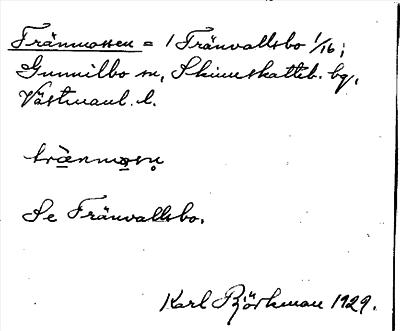 Tränmossen = 1 Tränvallsbo 1/16;
Gunnilbo sn, Skinnskatteb. bg,
Västmanl. l.
trä̀nmo̱sn̥
Se Tränvallsbo.
Karl Björkman 1929.